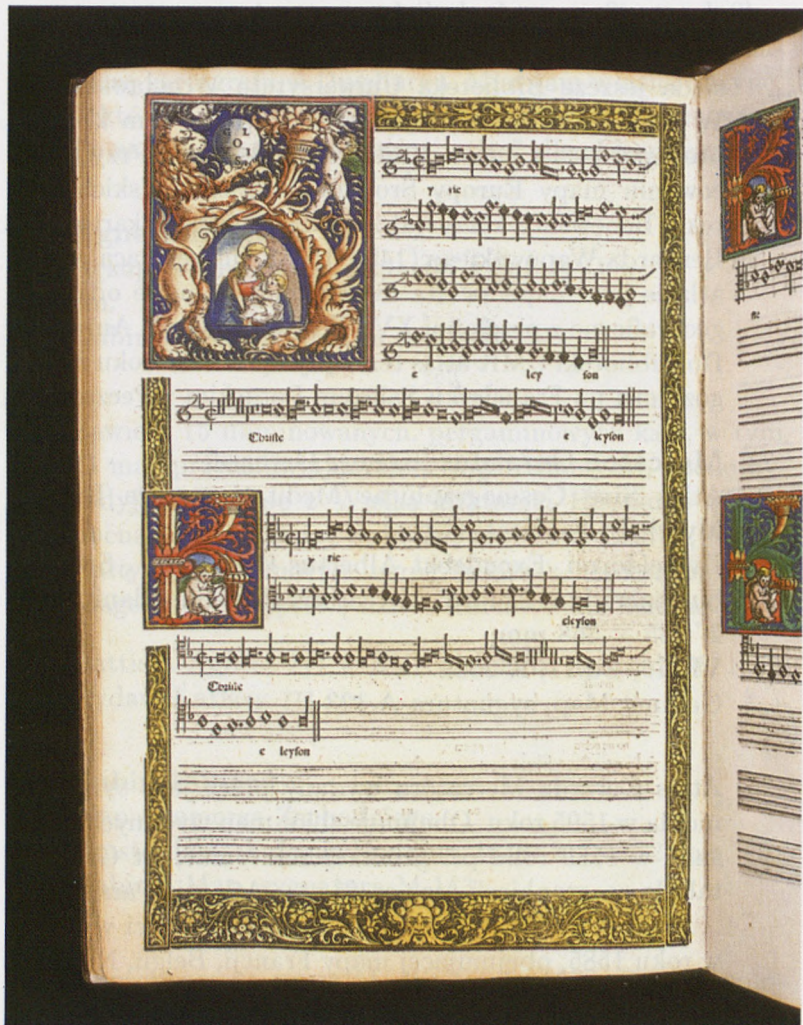 G L
O I
S
K y rie
e ley son
Christe e leyson
K y rie
eleyson
Christe
e leyson
K
K